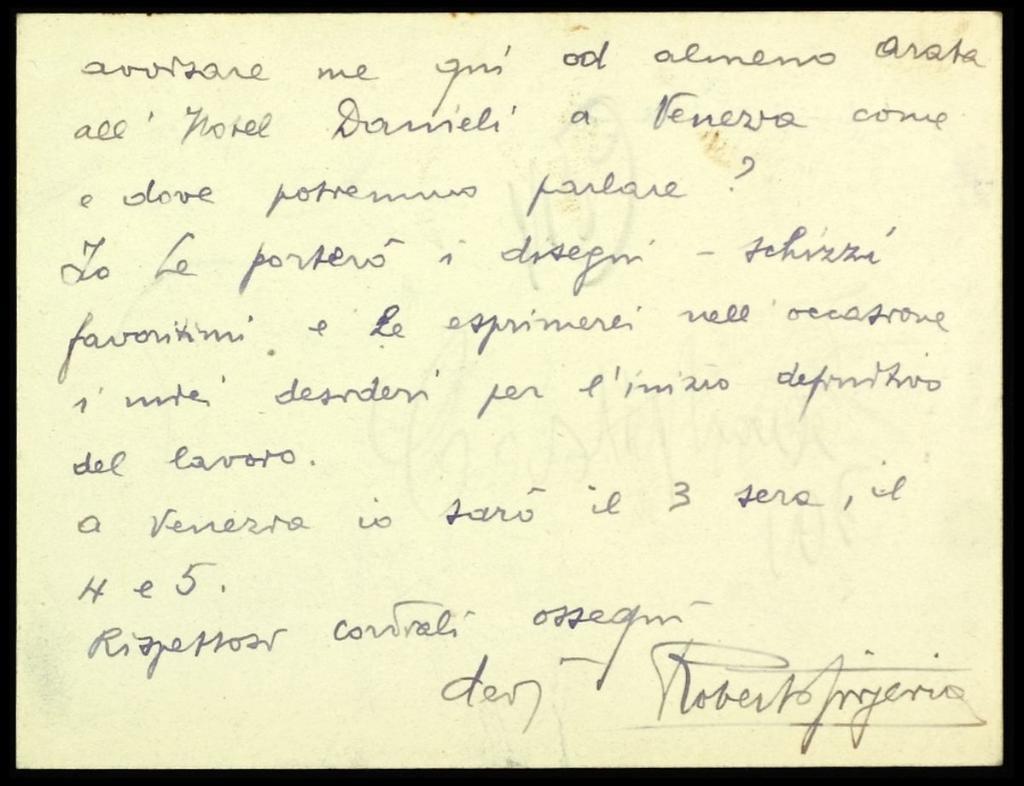 avvisare me qui od almeno Arata
all' Hotel Danieli a Venezia come
e dove potremmo parlare?
Io Le porterò i disegni - schizzi
favoritimi e Le esprimerei nell'occasione
i miei desideri per l'inizio definitivo
del lavoro.
a Venezia io sarò il 3 sera, il
4 e 5.
Rispettosi cordiali ossequi
Roberto